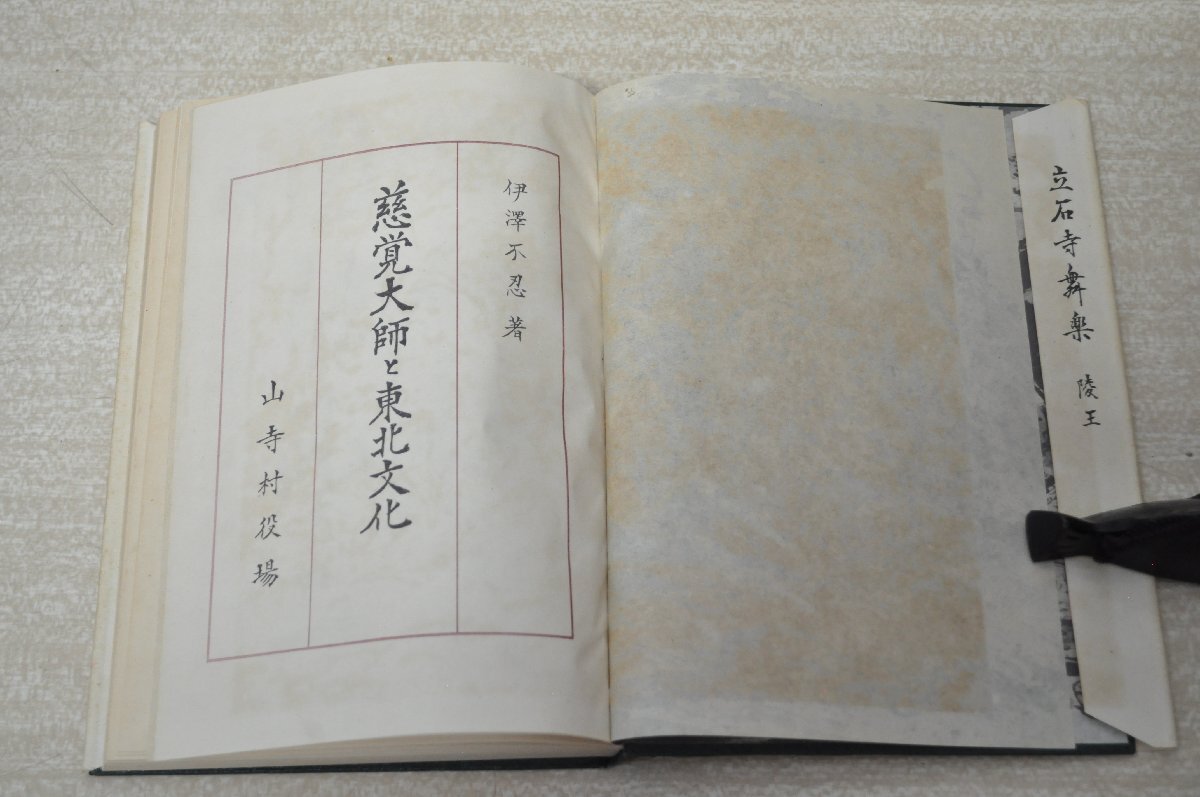 立石寺舞楽 陵王
伊澤不忍著
慈覚大師と東北文化
山寺村役場